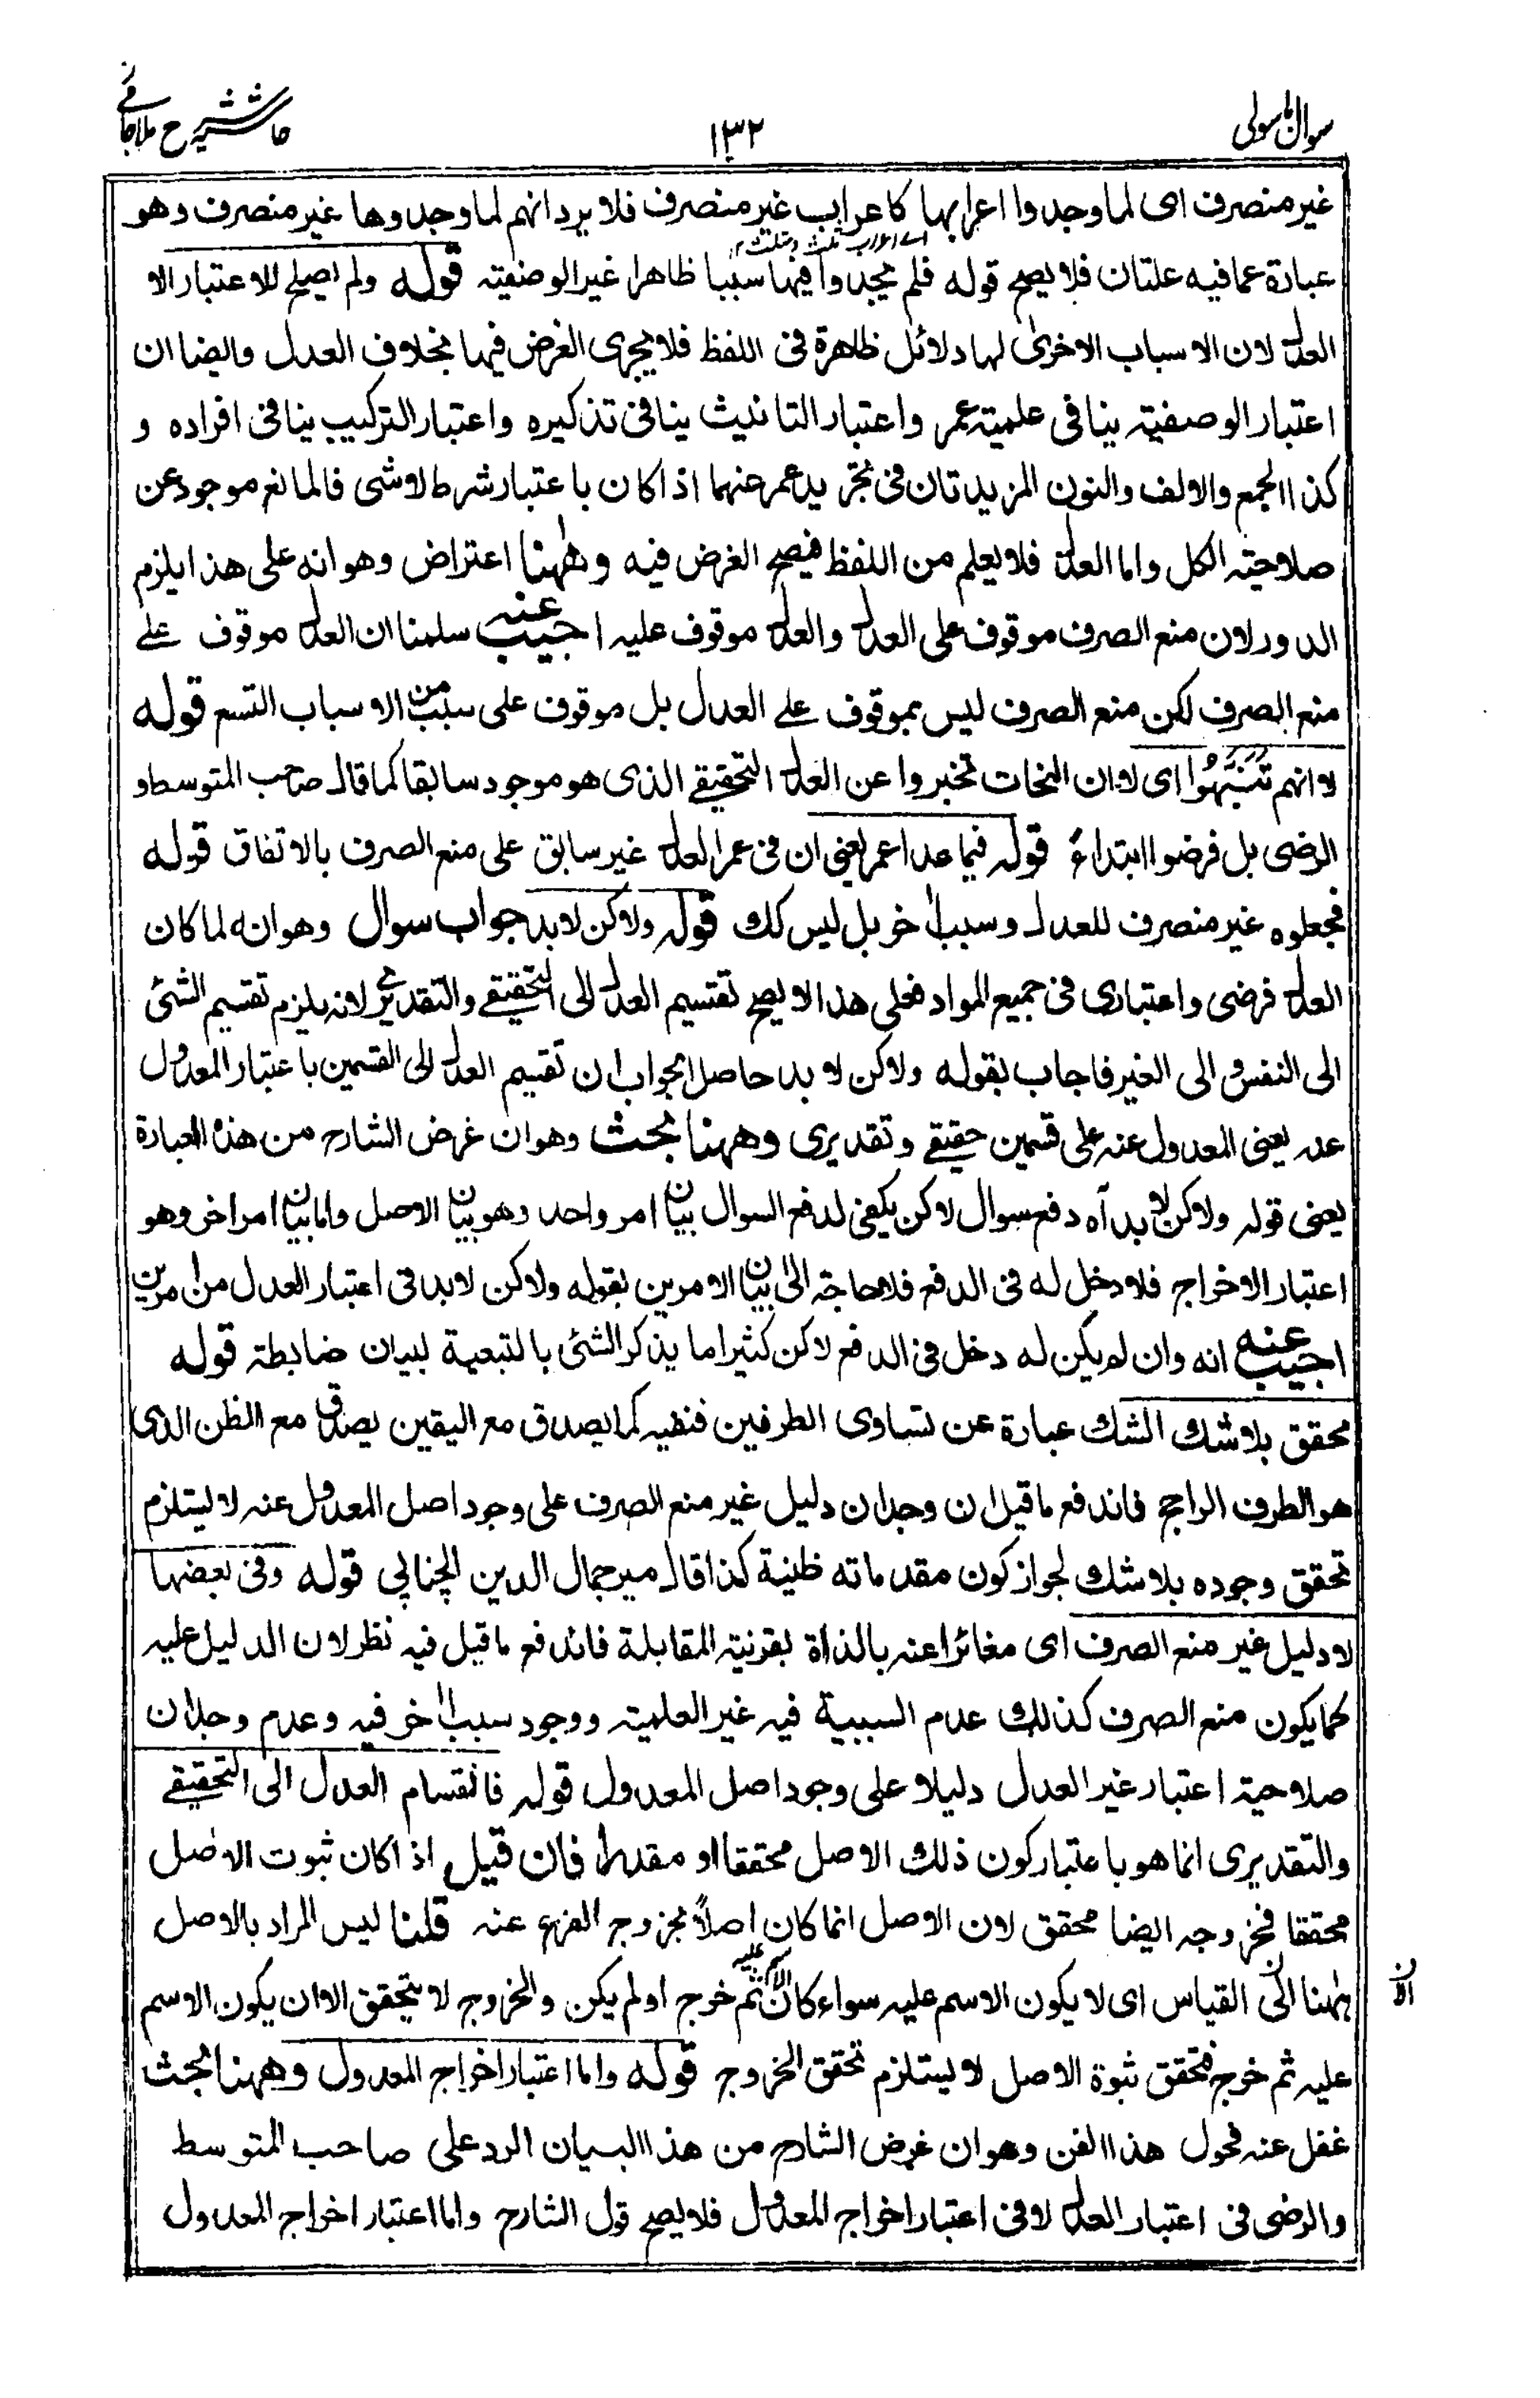 سوال باسولی ١٣٢ حاشیہ شرح ملا جامی
غیر منصرف ای لما وجدوا اعرابها کاعراب غیر منصرف فلا یرد انهم لما وجدوها غیر منصرف وهو
عبارة عما فیه علتان فلا یصح قوله فلم یجدوا فیها سببا ظاهرا غیر الوصفیته قوله ولم یصلح للاعتبار الا
العدل لان الاسباب الاخرٰی لها دلائل ظاهرة فی اللفظ فلا یجری الغرض فیها بخلاف العدل وایضا ان
اعتبار الوصفیته ینافی علمیته عمر واعتبار التانیث ینافی تذکیره واعتبار الترکیب ینافی افراده و
کذا الجمع والالف والنون المزیدتان فی تجریدعمر عنهما اذا کان باعتبار شرط لا شی فالمانع موجود عن
صلاحیته الکل واما العدل فلا یعلم من اللفظ فیصح الغرض فیه وهٰهنا اعتراض وهو انه علی هذا یلزم
الدور لان منع الصرف موقوف علی العدل والعدل موقوف علیه اجیب عنه سلمنا ان العدل موقوف علے
منع الصرف لکن منع الصرف لیس بموقوف علے العدل بل موقوف علی سببین من الاسباب التسع قوله
لانهم تَنَبَّهُوا ای لاان النحات تخبروا عن العدل التحقیقے الذی هو موجود سابقا کما قال صاحب المتوسط و
الرضی بل فرضوا ابتداءً قوله فیما عدا عمر یعنی ان فی عمر العدل غیر سابق علی منع الصرف بالاتفاق قوله
فجعلوه غیر منصرف للعدل وسبب اٰخر بل لیس کک قوله ولاکن لا بد جواب سوال وهو انه لما کان
العدل فرضی واعتباری فی جمیع المواد فعلی هذا لا یصح تقسیم العدل الی التحقیقے والتقدیری لانه یلزم تقسیم الشئ
الی النفس و الی الغیر فاجاب بقوله ولاکن لا بد حاصل الجواب ان تقسیم العدل الی القسمین باعتبار المعدول
عنه یعنی المعدول عنه علی قسمین حقیقے وتقدیری وههنا بحث وهو ان غرض الشارح من هذه العبارة
یعنی قوله ولاکن لا بد آه دفع سوال لاکن یکفی لدفع السوال بیان امر واحد وهو بیان الاصل واما بیان امر اخر وهو
اعتبار الاخراج فلا دخل له فی الدفع فلا حاجة الی بیان الامرین بقوله ولاکن لا بد فی اعتبار العدل من امرین
اجیب عنه انه وان لم یکن له دخل فی الدفع لاکن کثیرا ما یذکر الشئ بالتبعیة لبیان ضابطة قوله
محقق بلا شک الشک عبارة عن تساوی الطرفین فنفیه کما یصدق مع الیقین یصدق مع الظن الذی
هو الطرف الراجح فاندفع ما قیل ان وجدان دلیل غیر منع الصرف علی وجود اصل المعدول عنه لا یستلزم
تحقق وجوده بلا شک لجواز کون مقدماته ظنیة کذا قال میر جمال الدین الچنابی قوله وفی بعضها
لا دلیل غیر منع الصرف ای مغائرا عنه بالذاة بقرنیة المقابلة فاندفع ما قیل فیه نظر لان الدلیل علیه
کما یکون منع الصرف کذلک عدم السببیة فیه غیر العلمیته ووجود سبب اٰخر فیه وعدم وجدان
صلاحیة اعتبار غیر العدل دلیلا علی وجود اصل المعدول قوله فانقسام العدل الی التحقیقے
والتقدیری انما هو باعتبار کون ذلک الاصل محققا او مقدرا فان قیل اذا کان ثبوت الاصل
محققا فخروجه ایضا محقق لان الاصل انما کان اصلاً بخروج الفرع عنه قلنا لیس المراد بالاصل
هٰهنا الی القیاس ای لا یکون الاسم علیه سواء کان الاسم علیه ثم خرج او لم یکن والخروج لا یتحقق الا ان یکون الاسم
علیه ثم خرج فتحقق ثبوة الاصل لا یستلزم تحقق الخروج قوله واما اعتبار اخراج المعدول وههنا بحث
غفل عنه فحول هذا الفن وهو ان غرض الشارح من هذا البیان الرد علی صاحب المتوسط
والرضی فی اعتبار العدل لا فی اعتبار اخراج المعدول فلا یصح قول الشارح واما اعتبار اخراج المعدول